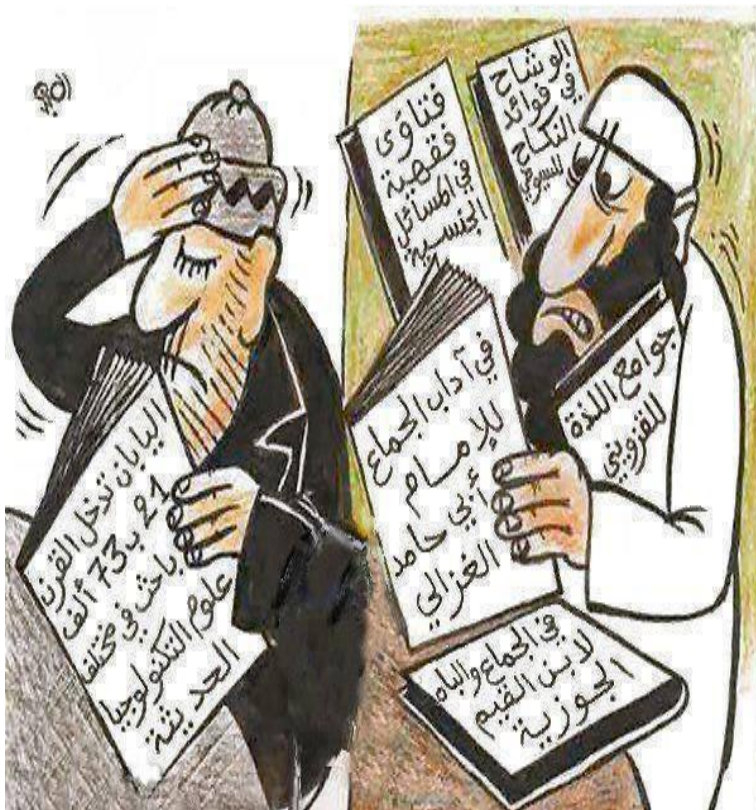 الوشاح
في فوائد
النكاح
للسيوطي
فتاوى
فقهية
في المسائل
الجنسية
جوامع اللذة
للقزويني
في آداب الجماع
للإمام
أبي حامد
الغزالي
في الجماع والباه
لابن القيم
الجوزية
اليابان تدخل القرن
21 ب 73 ألف
باحث في مختلف
علوم التكنولوجيا
الحديثة